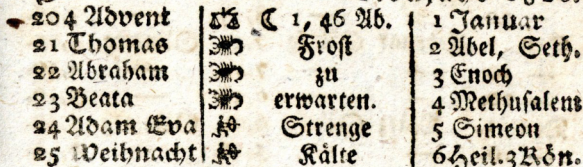 204 Advent ☾ 1, 46 Ab. 1 Januar
21 Thomas Frost 2 Abel, Seth.
22 Abraham zu 3 Enoch
23 Beata erwarten. 4 Methusalem
24 Adam Eva Strenge 5 Simeon
25 Weihnacht Kälte 6 Heil. 3 Kön.